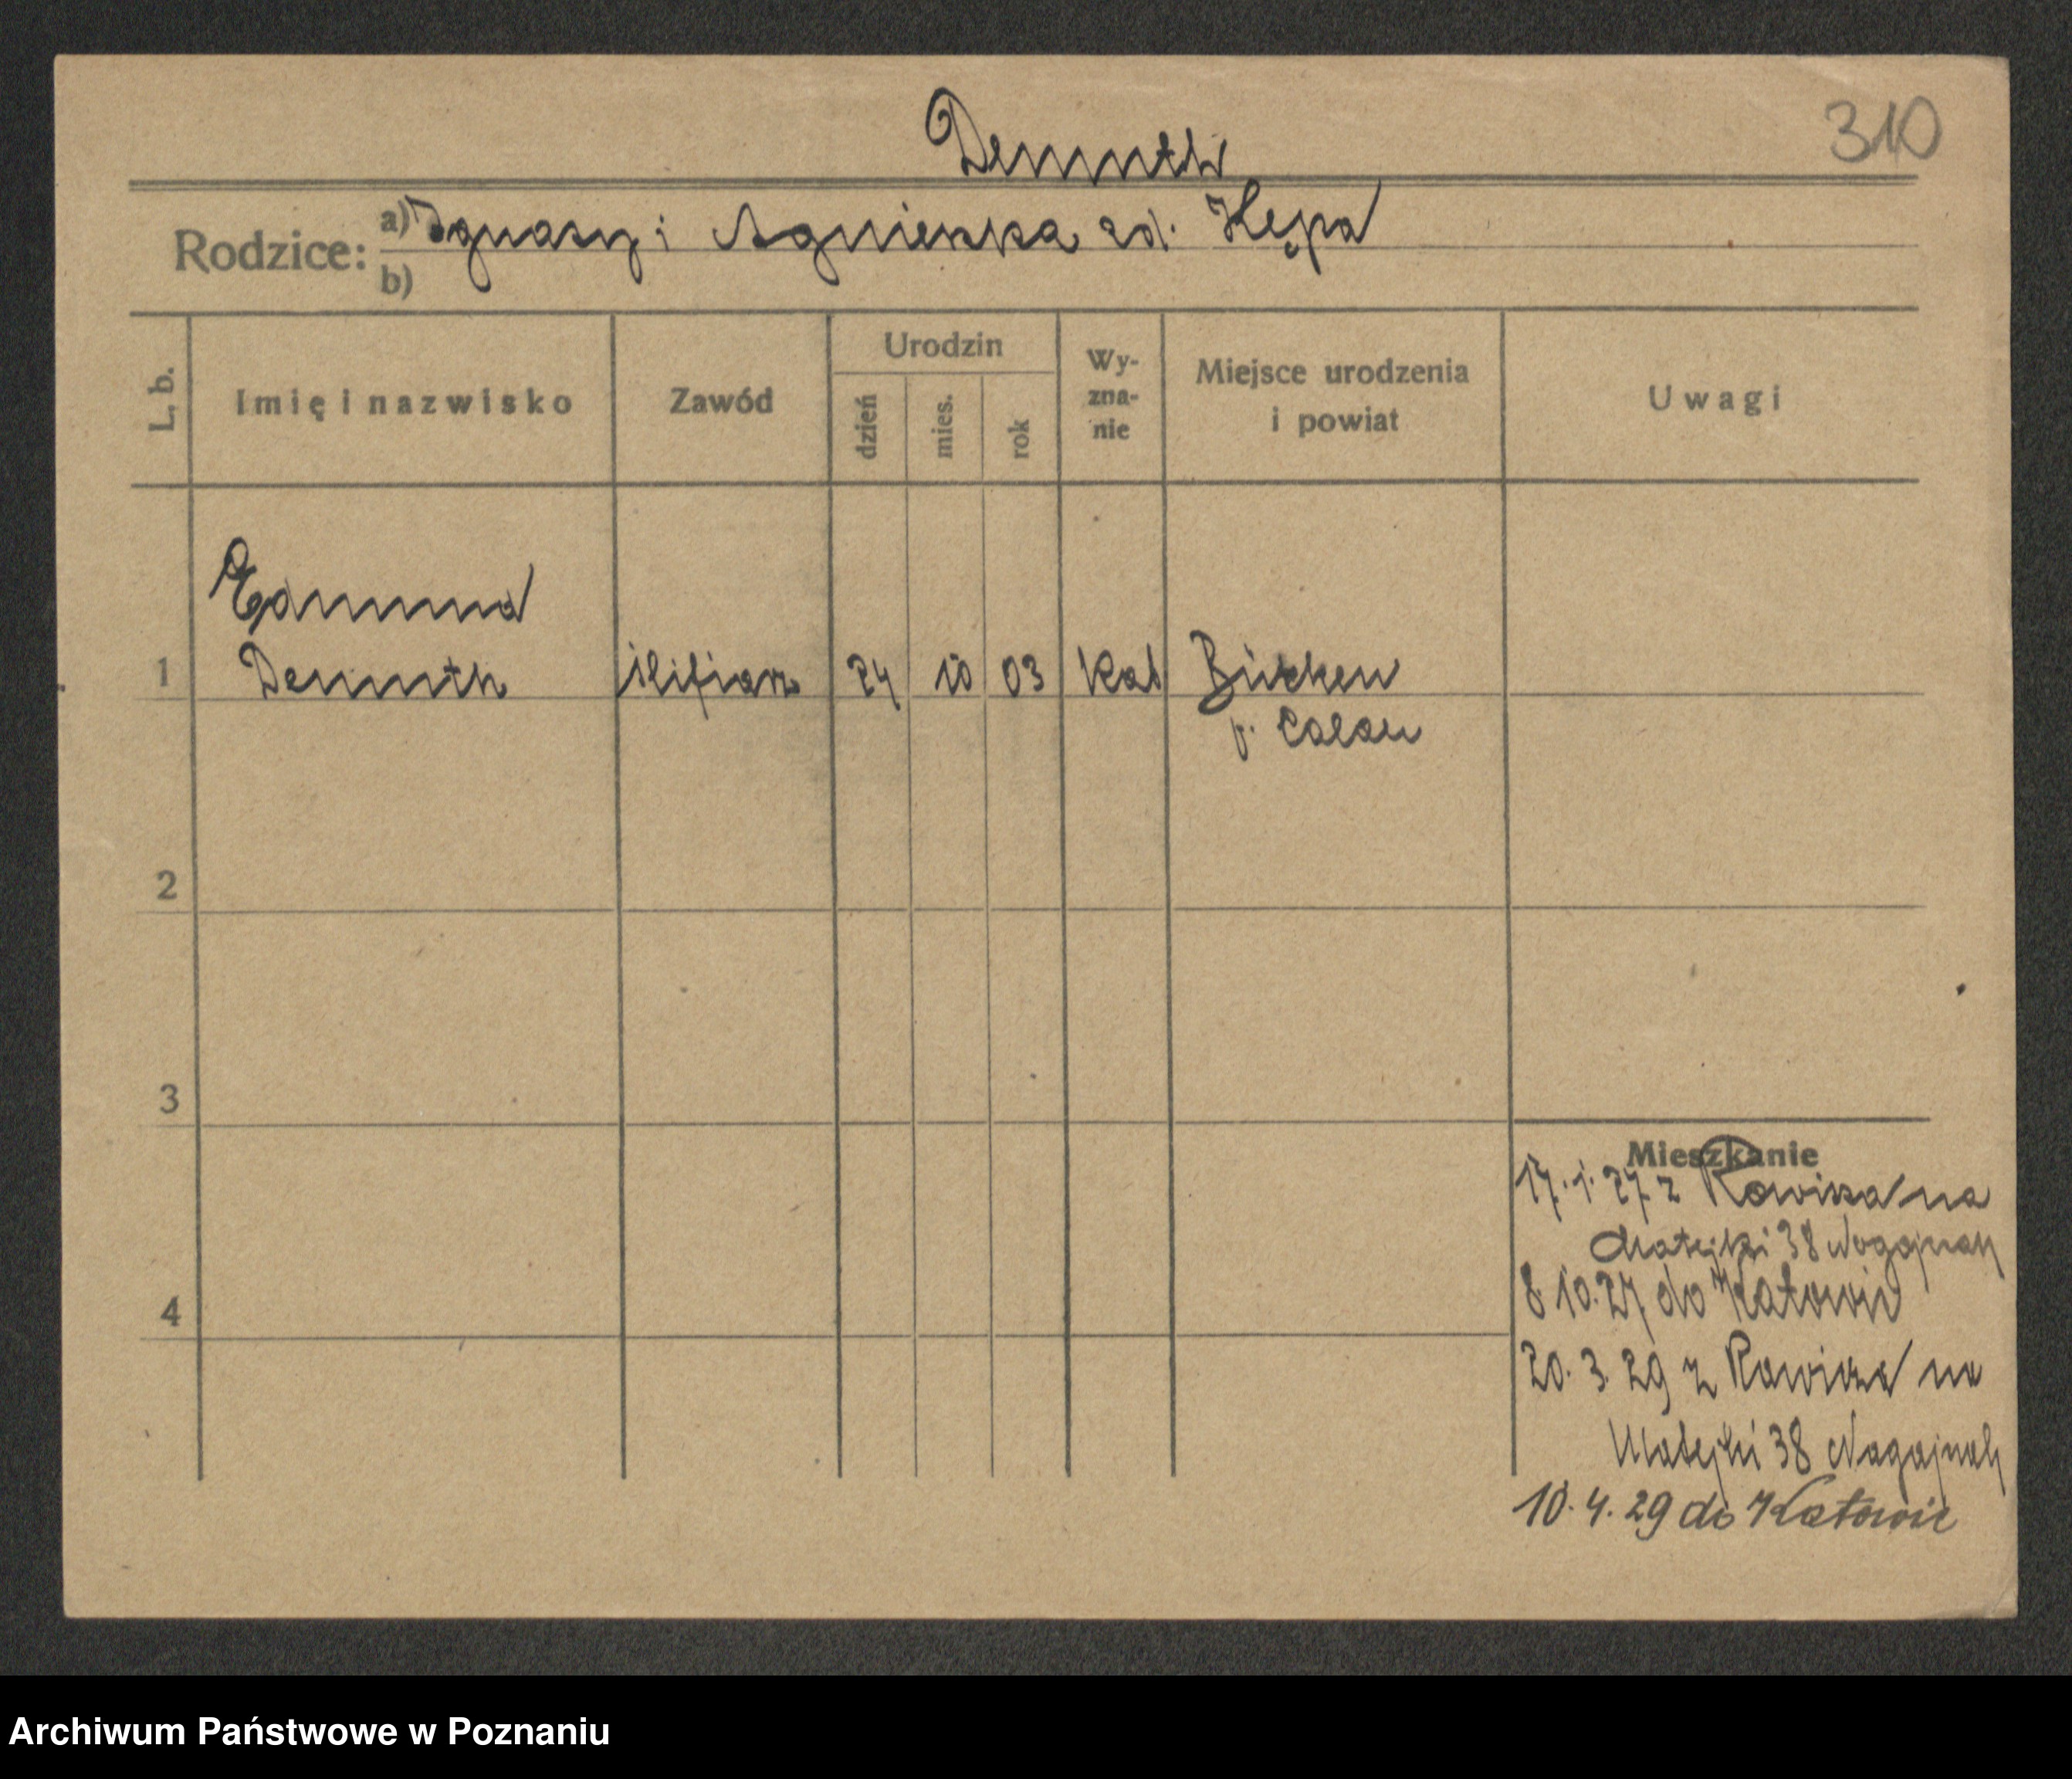 Demuth
310
Rodzice: a) Ignacy i Agnieszka zd. Kępa
b)
L. b. Imię i nazwisko Zawód Urodzin dzień mies. rok Wy-zna-nie Miejsce urodzenia i powiat Uwagi
Edmund
1 Demuth 24 10 03 kat Bücken
p. Calau
2
3
Mieszkanie
17.1.27 z Rawicza na
Matejki 38
4
8.10.27 do Katowic
20.3.29 z Rawicza na
Matejki 38
10.4.29 do Katowic
Archiwum Państwowe w Poznaniu